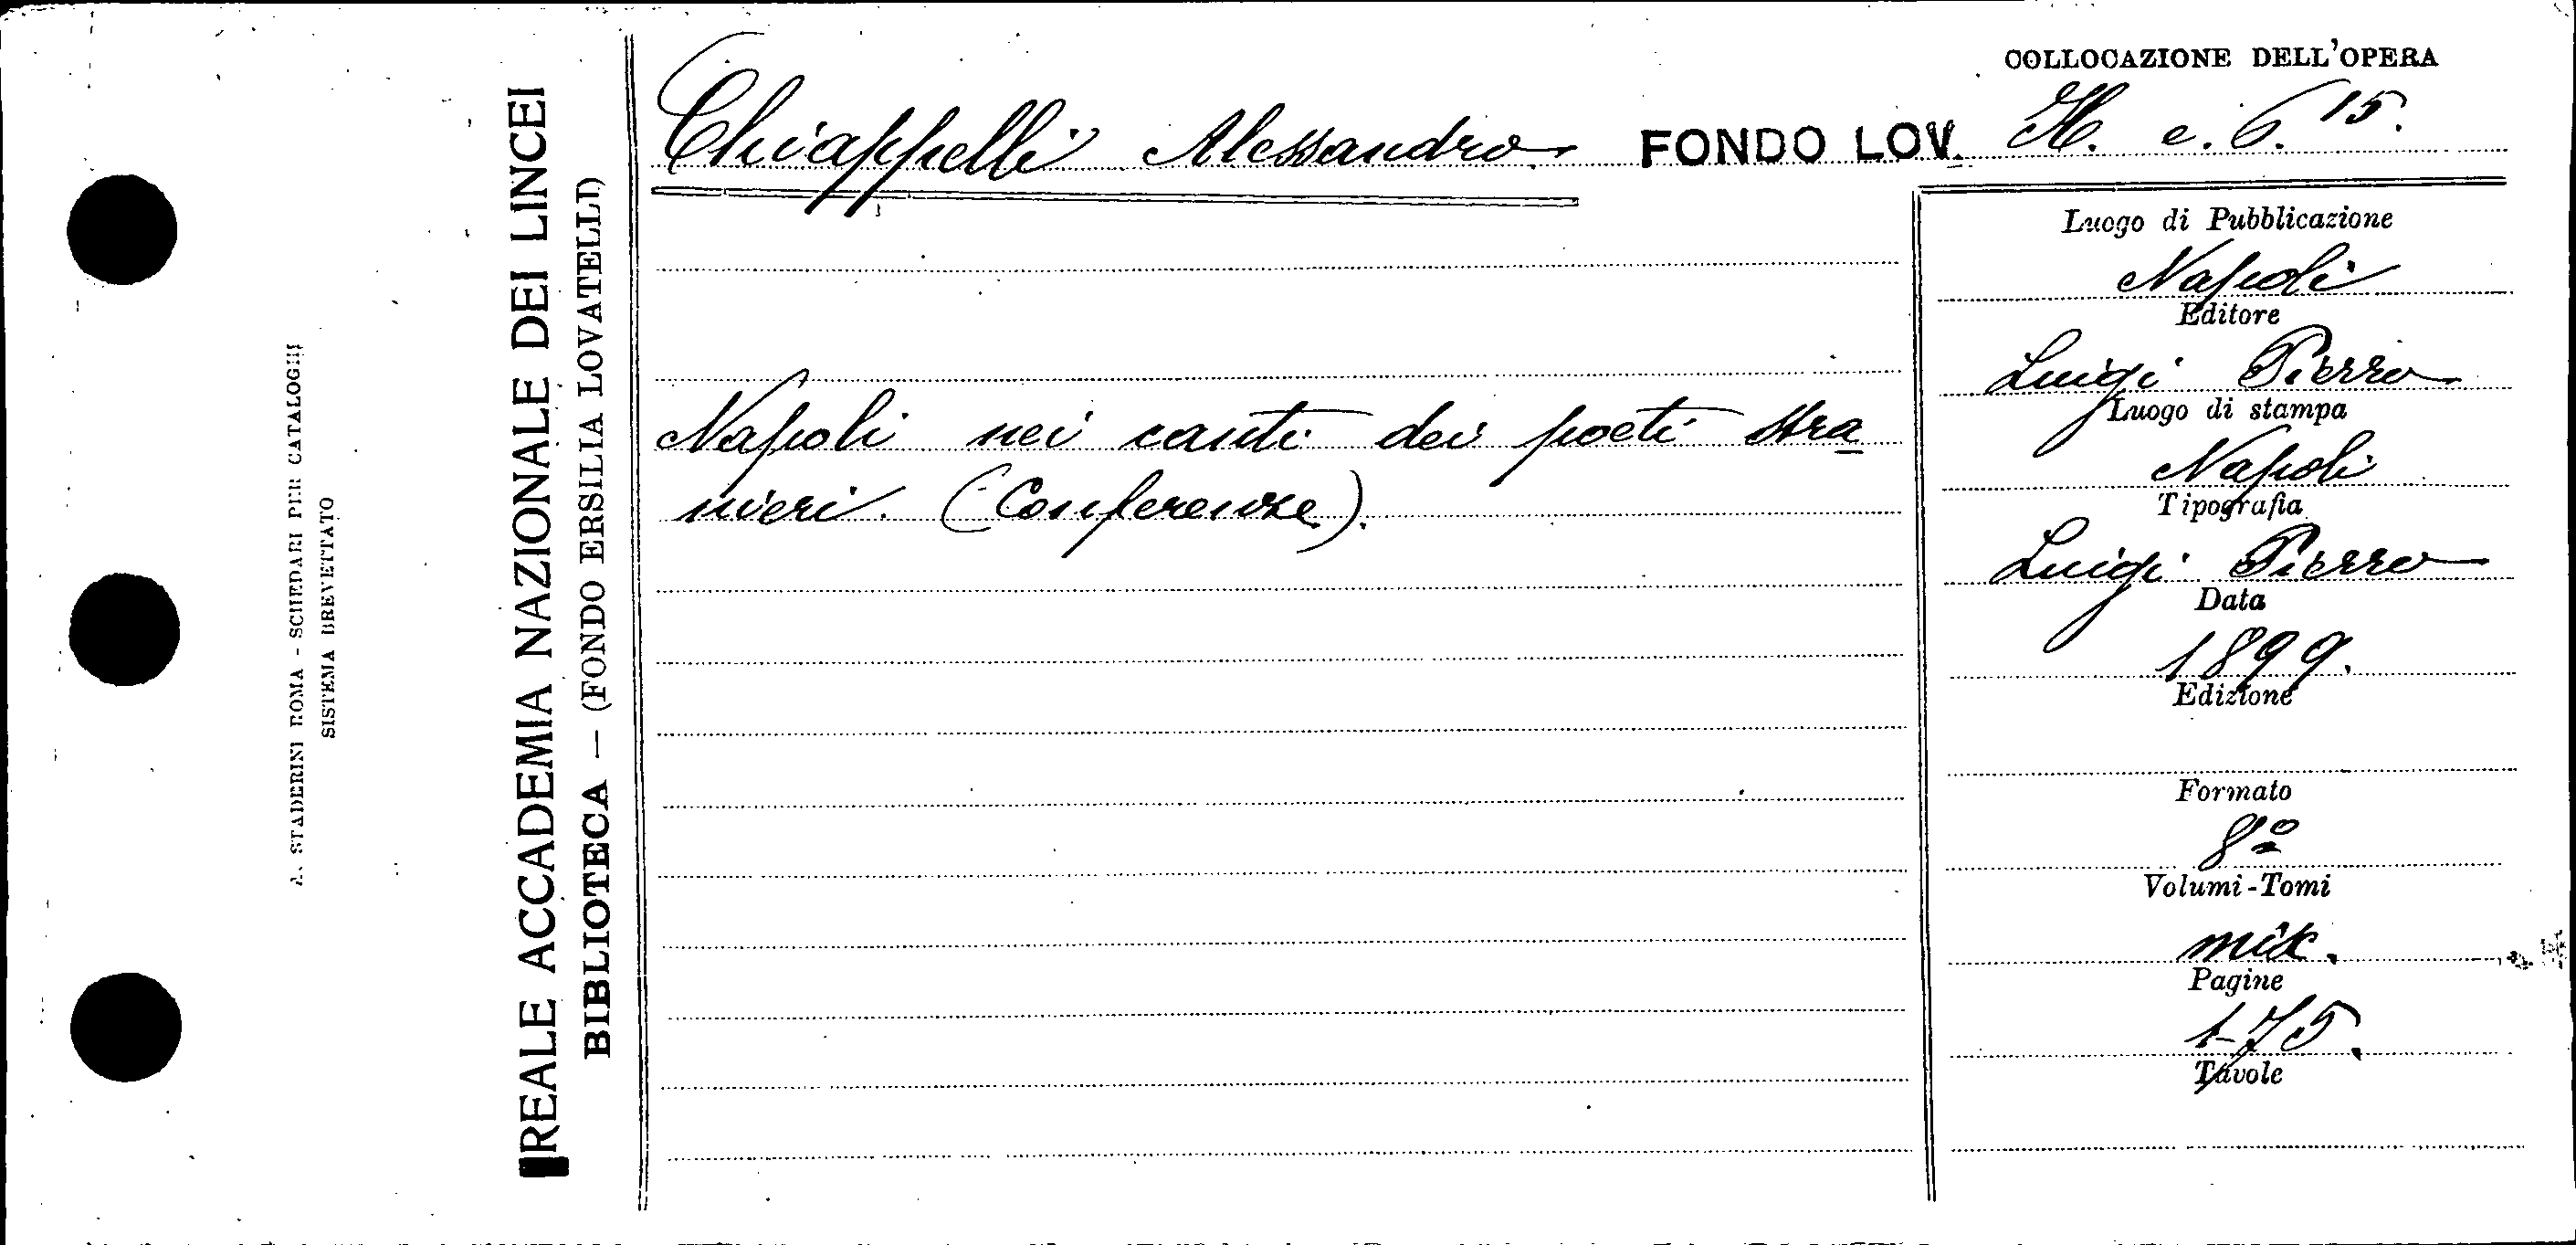 A. STADERINI ROMA - SCHEDARI PER CATALOGHI
SISTEMA BREVETTATO
REALE ACCADEMIA NAZIONALE DEI LINCEI
BIBLIOTECA — (FONDO ERSILIA LOVATELLI)
Chiappelli Alessandro
FONDO LOV.
COLLOCAZIONE DELL'OPERA
H. e. 6. 15.
Napoli nei canti dei poeti stra
nieri. (Conferenze).
Luogo di Pubblicazione
Napoli
Editore
Luigi Pierro
Luogo di stampa
Napoli
Tipografia
Luigi Pierro
Data
1899.
Edizione
Formato
8º
Volumi-Tomi
Pagine
1-75.
Tavole